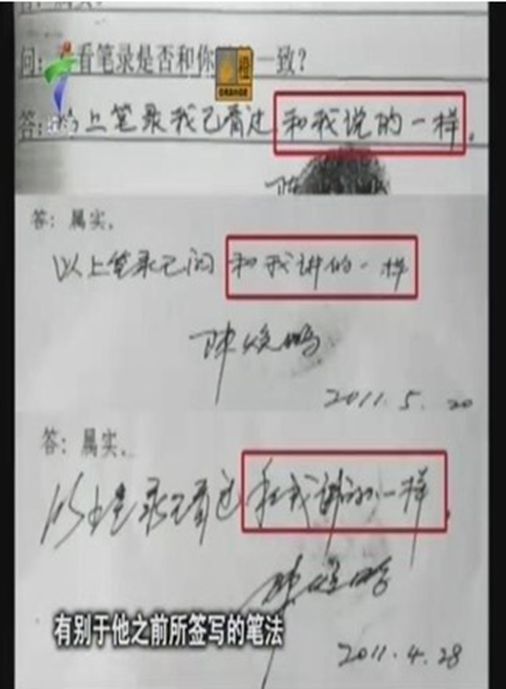 问: 看笔录是否和你 一致?
橙
ORANGE
答: 以上笔录我已看过 和我说的一样。
陈
答: 属实。
以上笔录已阅 和我讲的一样
陈焕鹏
2011.5.20
答: 属实。
以上笔录已看过 和我讲的一样。
陈焕鹏
有别于他之前所签写的笔法
2011.4.28